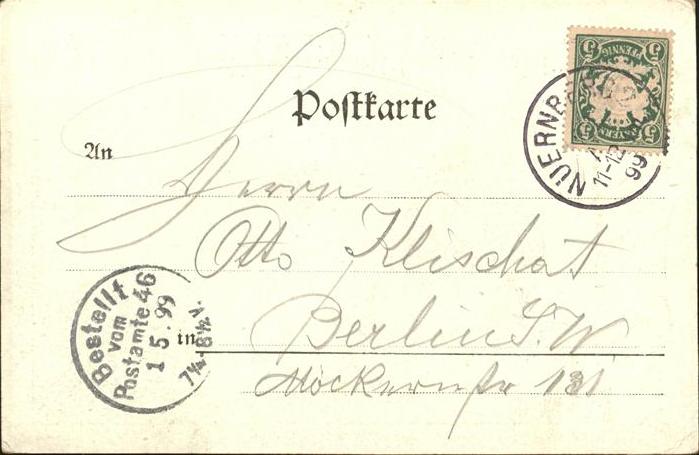 Postkarte
5 PFENNIG 5
5 BAYERN 5
NUERNB
11-12
99
An
Herrn
Otto Klischat
in Berlin S.W
Möckernstr 131
Bestellt
vom
Postamte 46
1 5. 99
7¼-8½ V.